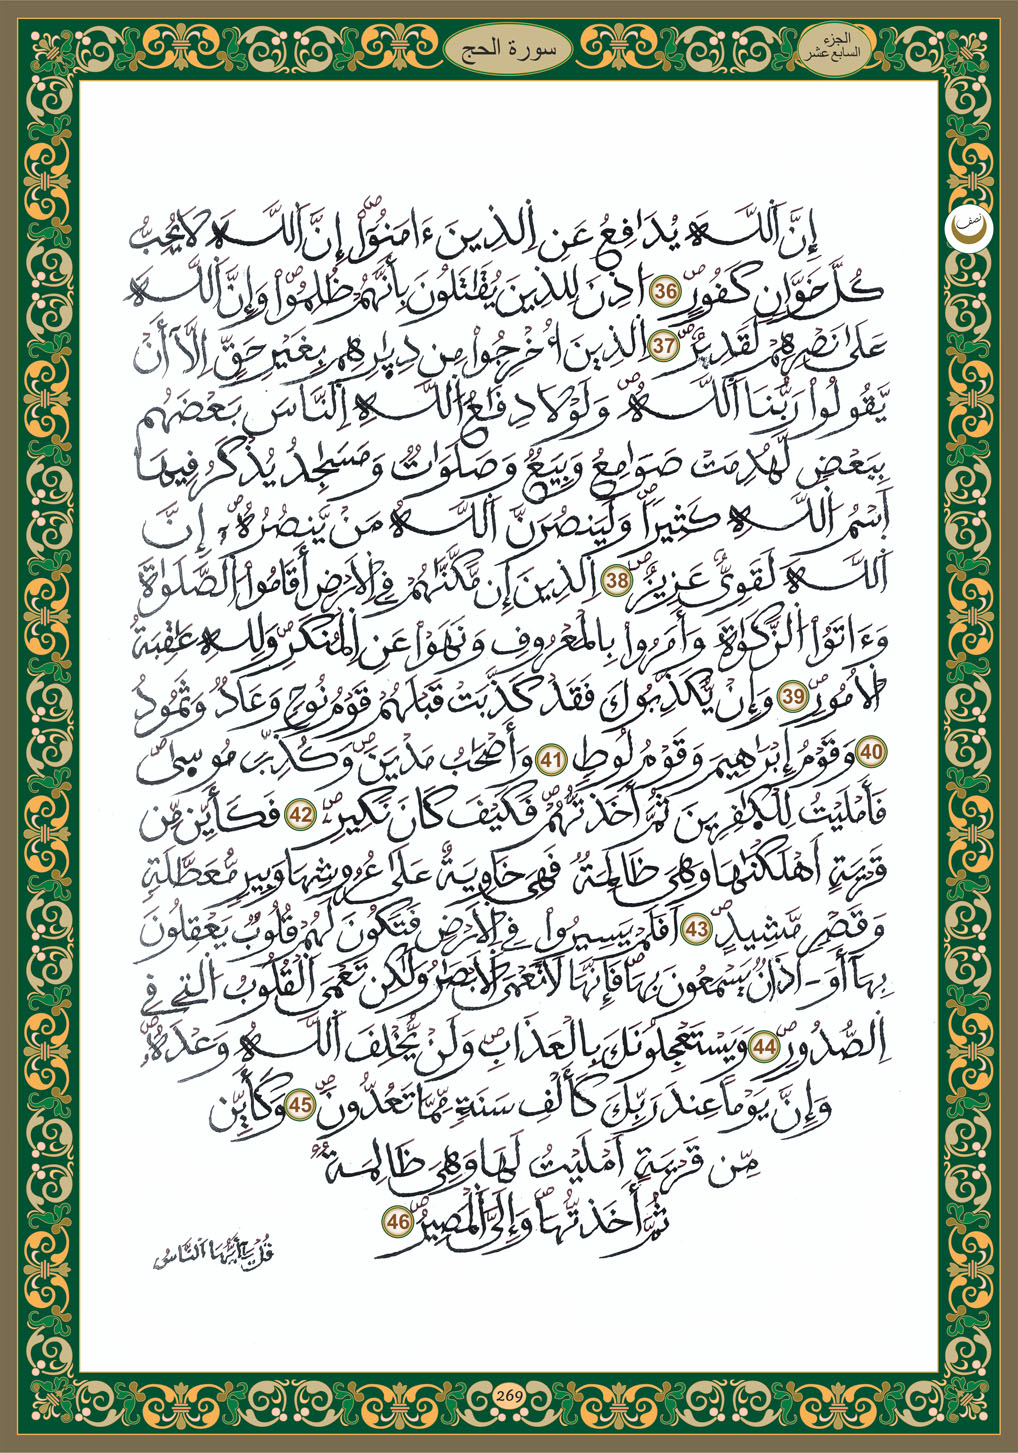 سورة الحج
الجزء
السابع عشر
نصف
إِنَّ اَ۬للَّهَ يُدَٰفِعُ عَنِ اِ۬لذِينَ ءَامَنُوٓاْۖ إِنَّ اَ۬للَّهَ لَا يُحِبُّ
كُلَّ خَوَّانٖ كَفُورٍۖ 36 ا۟ذِنَ لِلذِينَ يُقَٰتَلُونَ بِأَنَّهُمْ ظُلِمُواْۖ وَإِنَّ اَ۬للَّهَ
عَلَىٰ نَصْرِهِمْ لَقَدِيرٌۖ 37 اِ۬لذِينَ أُخْرِجُواْ مِن دِيٰ۪رِهِم بِغَيْرِ حَقٍّ اِلَّآ أَنْ
يَّقُولُواْ رَبُّنَا اَ۬للَّهُۖ وَلَوْلَا دِفَٰعُ اُ۬للَّهِ اِ۬لنَّاسَ بَعْضَهُم
بِبَعْضٖ لَّهُدِمَتْ صَوَٰمِعُ وَبِيَعٞ وَصَلَوَٰتٞ وَمَسَٰجِدُ يُذْكَرُ فِيهَا
اَ۪سْمُ اُ۬للَّهِ كَثِيراٗۖ وَلَيَنصُرَنَّ اَ۬للَّهُ مَنْ يَّنصُرُهُۥٓۖ إِنَّ
اَ۬للَّهَ لَقَوِيٌّ عَزِيزٌۖ 38 اِ۬لذِينَ إِن مَّكَّنَّٰهُمْ فِے اِ۬لَارْضِ أَقَامُواْ اُ۬لصَّلَوٰةَ
وَءَاتَوُاْ اُ۬لزَّكَوٰةَ وَأَمَرُواْ بِالْمَعْرُوفِ وَنَهَوْاْ عَنِ اِ۬لْمُنكَرِۖ وَلِلهِ عَٰقِبَةُ
اُ۬لُامُورِۖ 39 وَإِنْ يُّكَذِّبُوكَ فَقَدْ كَذَّبَتْ قَبْلَهُمْ قَوْمُ نُوحٖ وَعَادٞ وَثَمُودُ
40 وَقَوْمُ إِبْرَٰهِيمَ وَقَوْمُ لُوطٖ 41 وَأَصْحَٰبُ مَدْيَنَۖ وَكُذِّبَ مُوس۪ىٰۖ
فَأَمْلَيْتُ لِلْكٰ۪فِرِينَ ثُمَّ أَخَذتُّهُمْۖ فَكَيْفَ كَانَ نَكِيرِۦۖ 42 فَكَأَيِّن مِّن
قَرْيَةٍ اَهْلَكْنَٰهَا وَهِيَ ظَالِمَةٞ فَهِيَ خَاوِيَةٌ عَلَىٰ عُرُوشِهَا وَبِيرٖ مُّعَطَّلَةٖ
وَقَصْرٖ مَّشِيدٍۖ 43 اَفَلَمْ يَسِيرُواْ فِے اِ۬لَارْضِ فَتَكُونَ لَهُمْ قُلُوبٞ يَعْقِلُونَ
بِهَآ أَوَ ـ اذَانٞ يَسْمَعُونَ بِهَاۖ فَإِنَّهَا لَا تَعْمَى اَ۬لَابْصَٰرُ وَلَٰكِن تَعْمَى اَ۬لْقُلُوبُ اُ۬لتِے فِے
اِ۬لصُّدُورِۖ 44 وَيَسْتَعْجِلُونَكَ بِالْعَذَابِۖ وَلَنْ يُّخْلِفَ اَ۬للَّهُ وَعْدَهُۥۖ
وَإِنَّ يَوْماً عِندَ رَبِّكَ كَأَلْفِ سَنَةٖ مِّمَّا تَعُدُّونَۖ 45 وَكَأَيِّن
مِّن قَرْيَةٍ اَمْلَيْتُ لَهَا وَهِيَ ظَالِمَةٞ
ثُمَّ أَخَذتُّهَاۖ وَإِلَيَّ اَ۬لْمَصِيرُۖ 46
قُلْ يَٰٓأَيُّهَا اَ۬لنَّاسُ
269